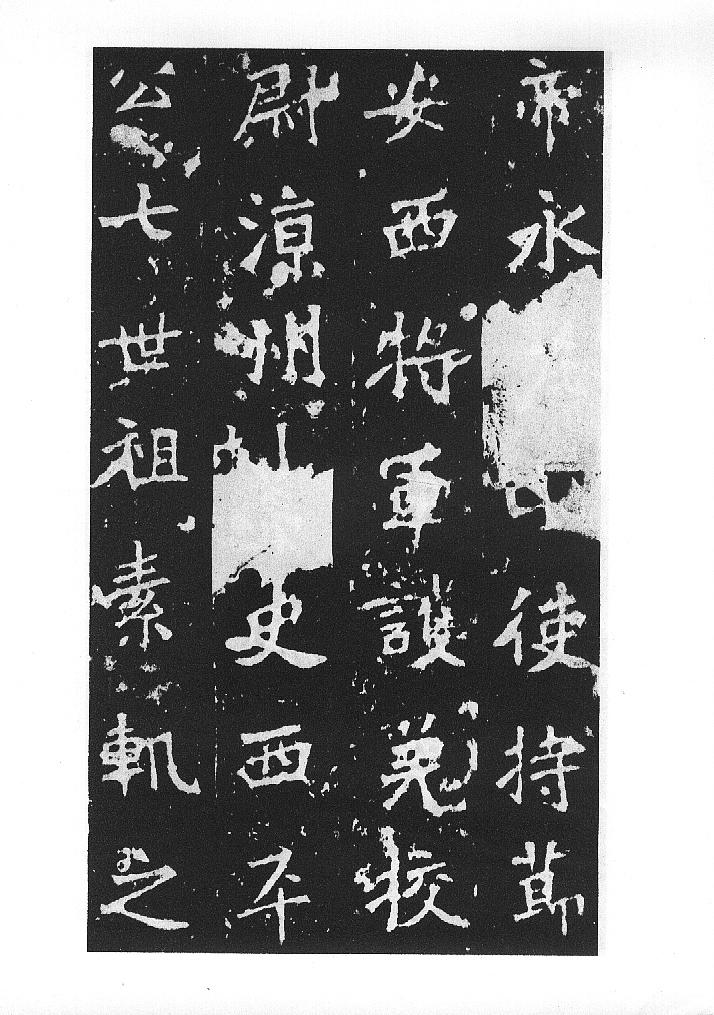 帝永使持節
安西將軍護羌校
尉涼州史西平
公七世祖素軌之